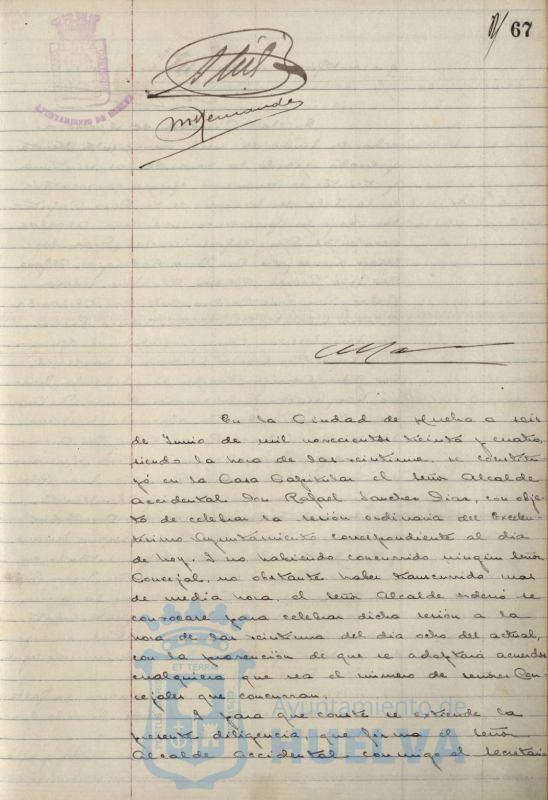 67
AYUNTAMIENTO DE HUELVA
En la Ciudad de Huelva a seis
de Junio de mil novecientos treinta y cuatro,
siendo la hora de las veintiuna, se constitu-
yó en la Casa Capitular el señor Alcalde
accidental Don Rafael Sanchez Diaz, con obje-
to de celebrar la sesión ordinaria del Excelen-
tisimo Ayuntamiento correspondiente al dia
de hoy. Y no habiendo concurrido ningun señor
Concejal, no obstante haber transcurrido mas
de media hora, el señor Alcalde ordenó se
convocase para celebrar dicha sesión a la
hora de las veintiuna del dia ocho del actual,
con la prevención de que se adoptará acuerdo
cualquiera que sea el número de señores Con-
cejales que concurran.
Y para que conste se extiende la
presente diligencia, que firma el señor
Alcalde accidental conmigo el Secretari
ET TERRA
Ayuntamiento de
HUELVA